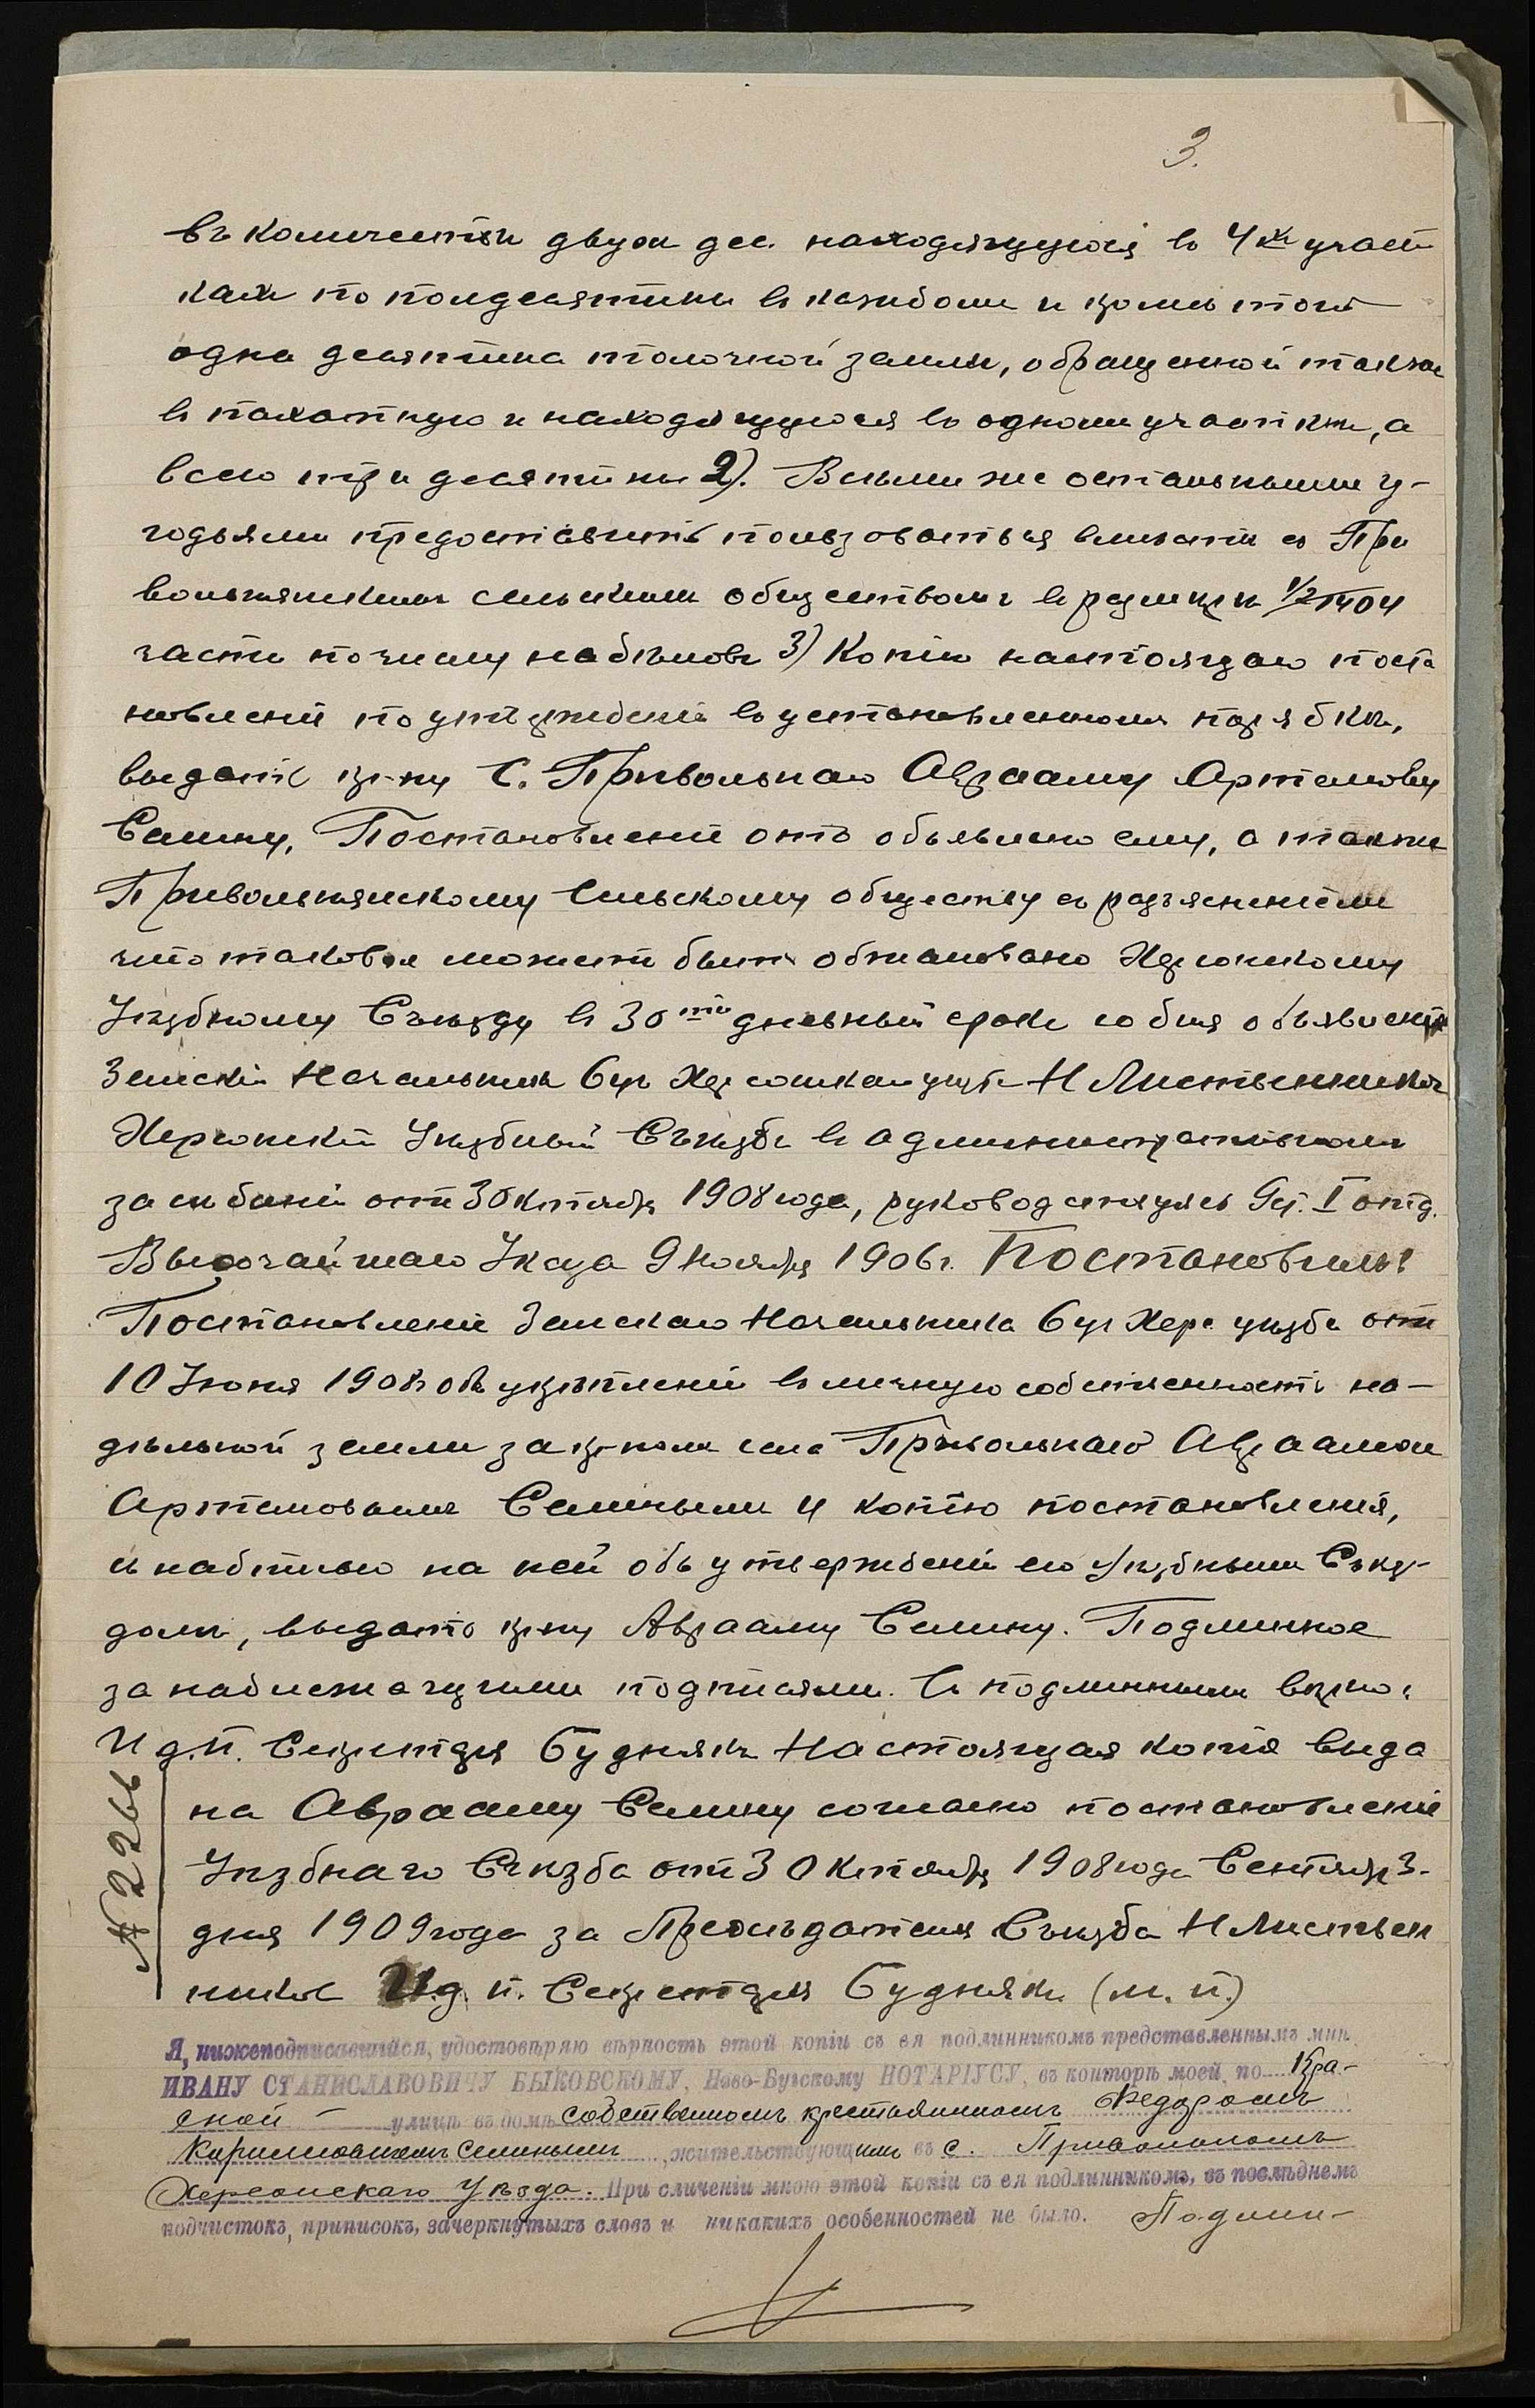 3.
въ количествѣ двухъ дес. находящуюся въ 4хъ участ
кахъ по полдесятины въ каждомъ и кромѣ того
одна десятина толочной земли, обращенной также
въ пахатную и находящуюся въ одномъ участкѣ, а
всего три десятины 2). Всѣми же остальными у-
годьями предоставить пользоваться вмѣстѣ съ При
вольнянскимъ сельскимъ обществомъ въ размѣрѣ 1/2 той
части по числу надѣловъ 3) Копію настоящаго поста
новленія по утвержденіи въ установленномъ порядкѣ,
выдать кр-ну С. Привольнаго Аврааму Артемову
Селину, Постановленіе это объявлено ему, а также
Привольнянскому Сельскому обществу съ разъясненіемъ
что таковое можетъ быть обжаловано Херсонскому
Уѣздному Съѣзду въ 30ти дневный срокъ со дня объявленія
Земскій Начальникъ 6 уч Херсонскаго уѣзда Н Лиственниковъ
Херсонскій Уѣздный Съѣздъ въ административномъ
засѣданіи отъ 3 Октября 1908 года, руководствуясь 9 ст. I отд.
Высочайшаго Указа 9 Ноября 1906 г. Постановилъ:
Постановленіе Земскаго Начальника 6 уч Херс. уѣзда отъ
10 Іюня 1908 г объ укрѣпленіи въ личную собственность на-
дѣльной земли за кр-номъ села Привольнаго Авраамомъ
Артемовымъ Селинымъ и копію постановленія,
съ надписью на ней объ утвержденіи его Уѣзднымъ Съѣз-
домъ, выдать кр-ну Аврааму Селину. Подлинное
за надлежащими подписями. Съ подлиннымъ вѣрно:
И д. п. Секретаря Буднякъ Настоящая копія выда
на Аврааму Селину согласно постановленія
Уѣзднаго Съѣзда отъ 3 Октября 1908 года Сентября 3-
дня 1909 года за Предсѣдателя Съѣзда Н Лиственн
никовъ И.д. п. Секретаря Буднякъ (м. п.)
№ 2266
Я, нижеподписавшійся, удостовѣряю вѣрность этой копіи съ ея подлинникомъ представленнымъ мнѣ
ИВАНУ СТАНИСЛАВОВИЧУ БЫКОВСКОМУ, Ново-Бугскому НОТАРІУСУ, въ конторѣ моей, по Кра-
сной - улицѣ въ домѣ собственномъ крестьяниномъ Федоромъ
Кирилловичемъ Селинымъ, жительствующимъ въ с. Привольномъ
Херсонскаго Уѣзда. При сличеніи мною этой копіи съ ея подлинникомъ, въ послѣднемъ
подчистокъ, приписокъ, зачеркнутыхъ словъ и никакихъ особенностей не было. Подлин-